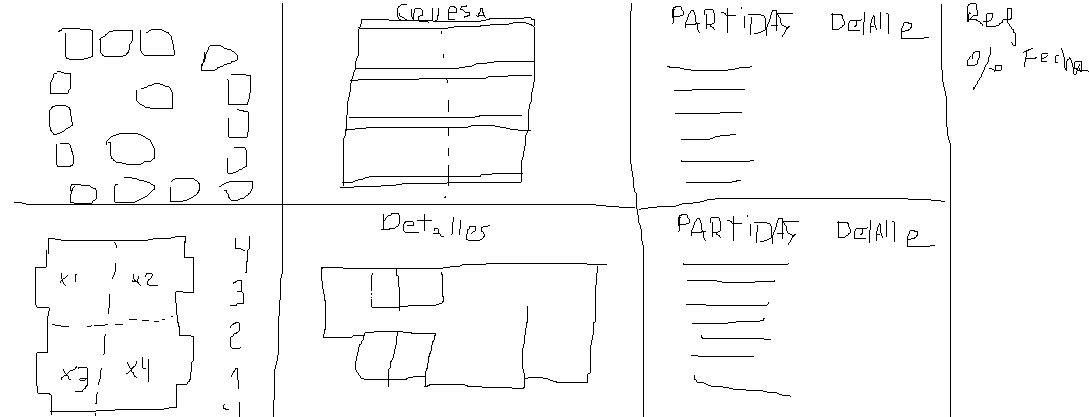 GRUESA
PARTIDAS DetAlle
Ref
% Fecha
x1 x2
x3 x4
4
3
2
1
-1
Detalles
PARTiDAS DetAlle